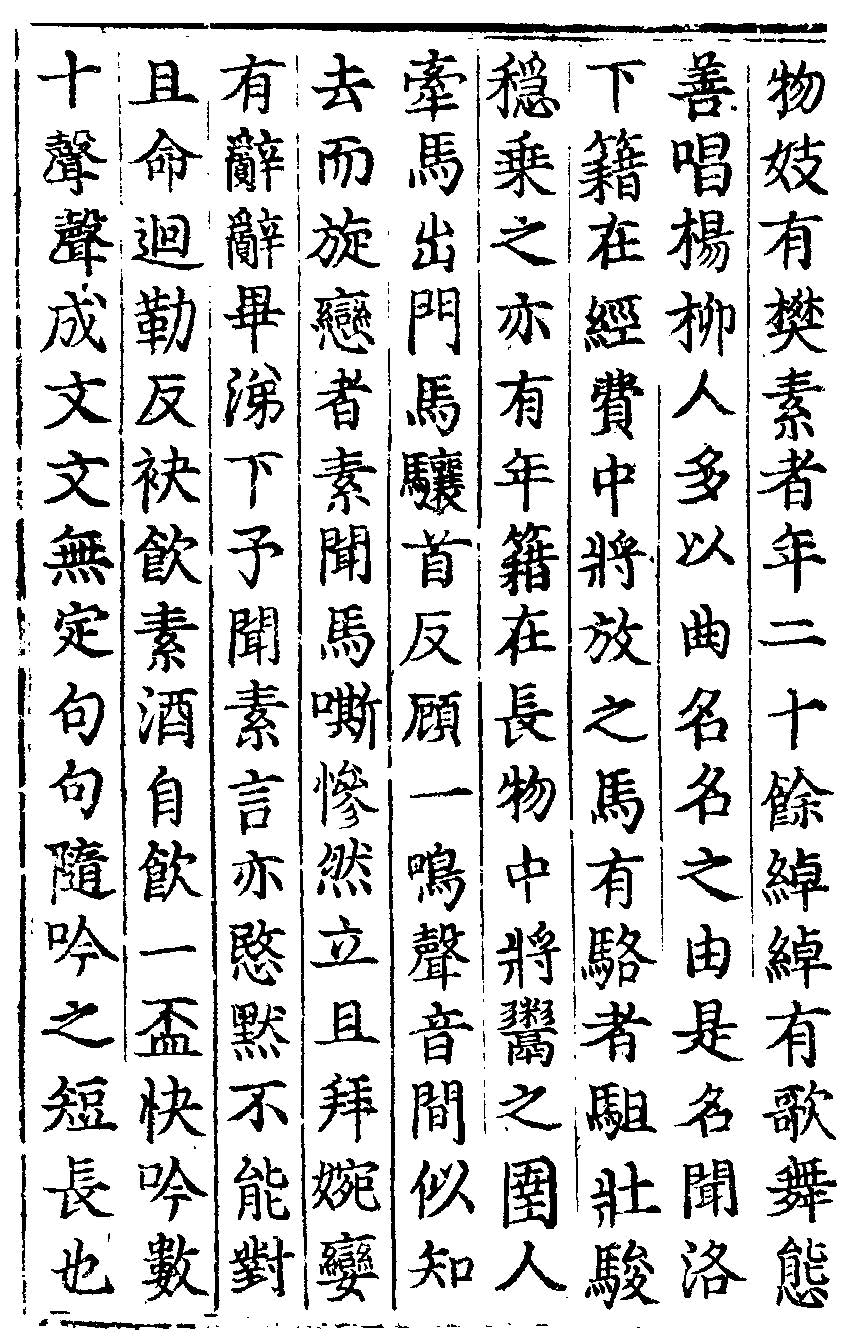 物妓有樊素者年二十餘綽綽有歌舞態
善唱楊柳人多以曲名名之由是名聞洛
下籍在經費中將放之馬有駱者駔壯駿
穏乗之亦有年籍在長物中將鬻之圉人
牽馬出門馬驤首反顧一鳴聲音間似知
去而旋戀者素聞馬嘶慘然立且拜婉孌
有辭辭畢涕下予聞素言亦愍黙不能對
且命迴勒反袂飲素酒自飲一盃快吟數
十聲聲成文文無定句句隨吟之短長也